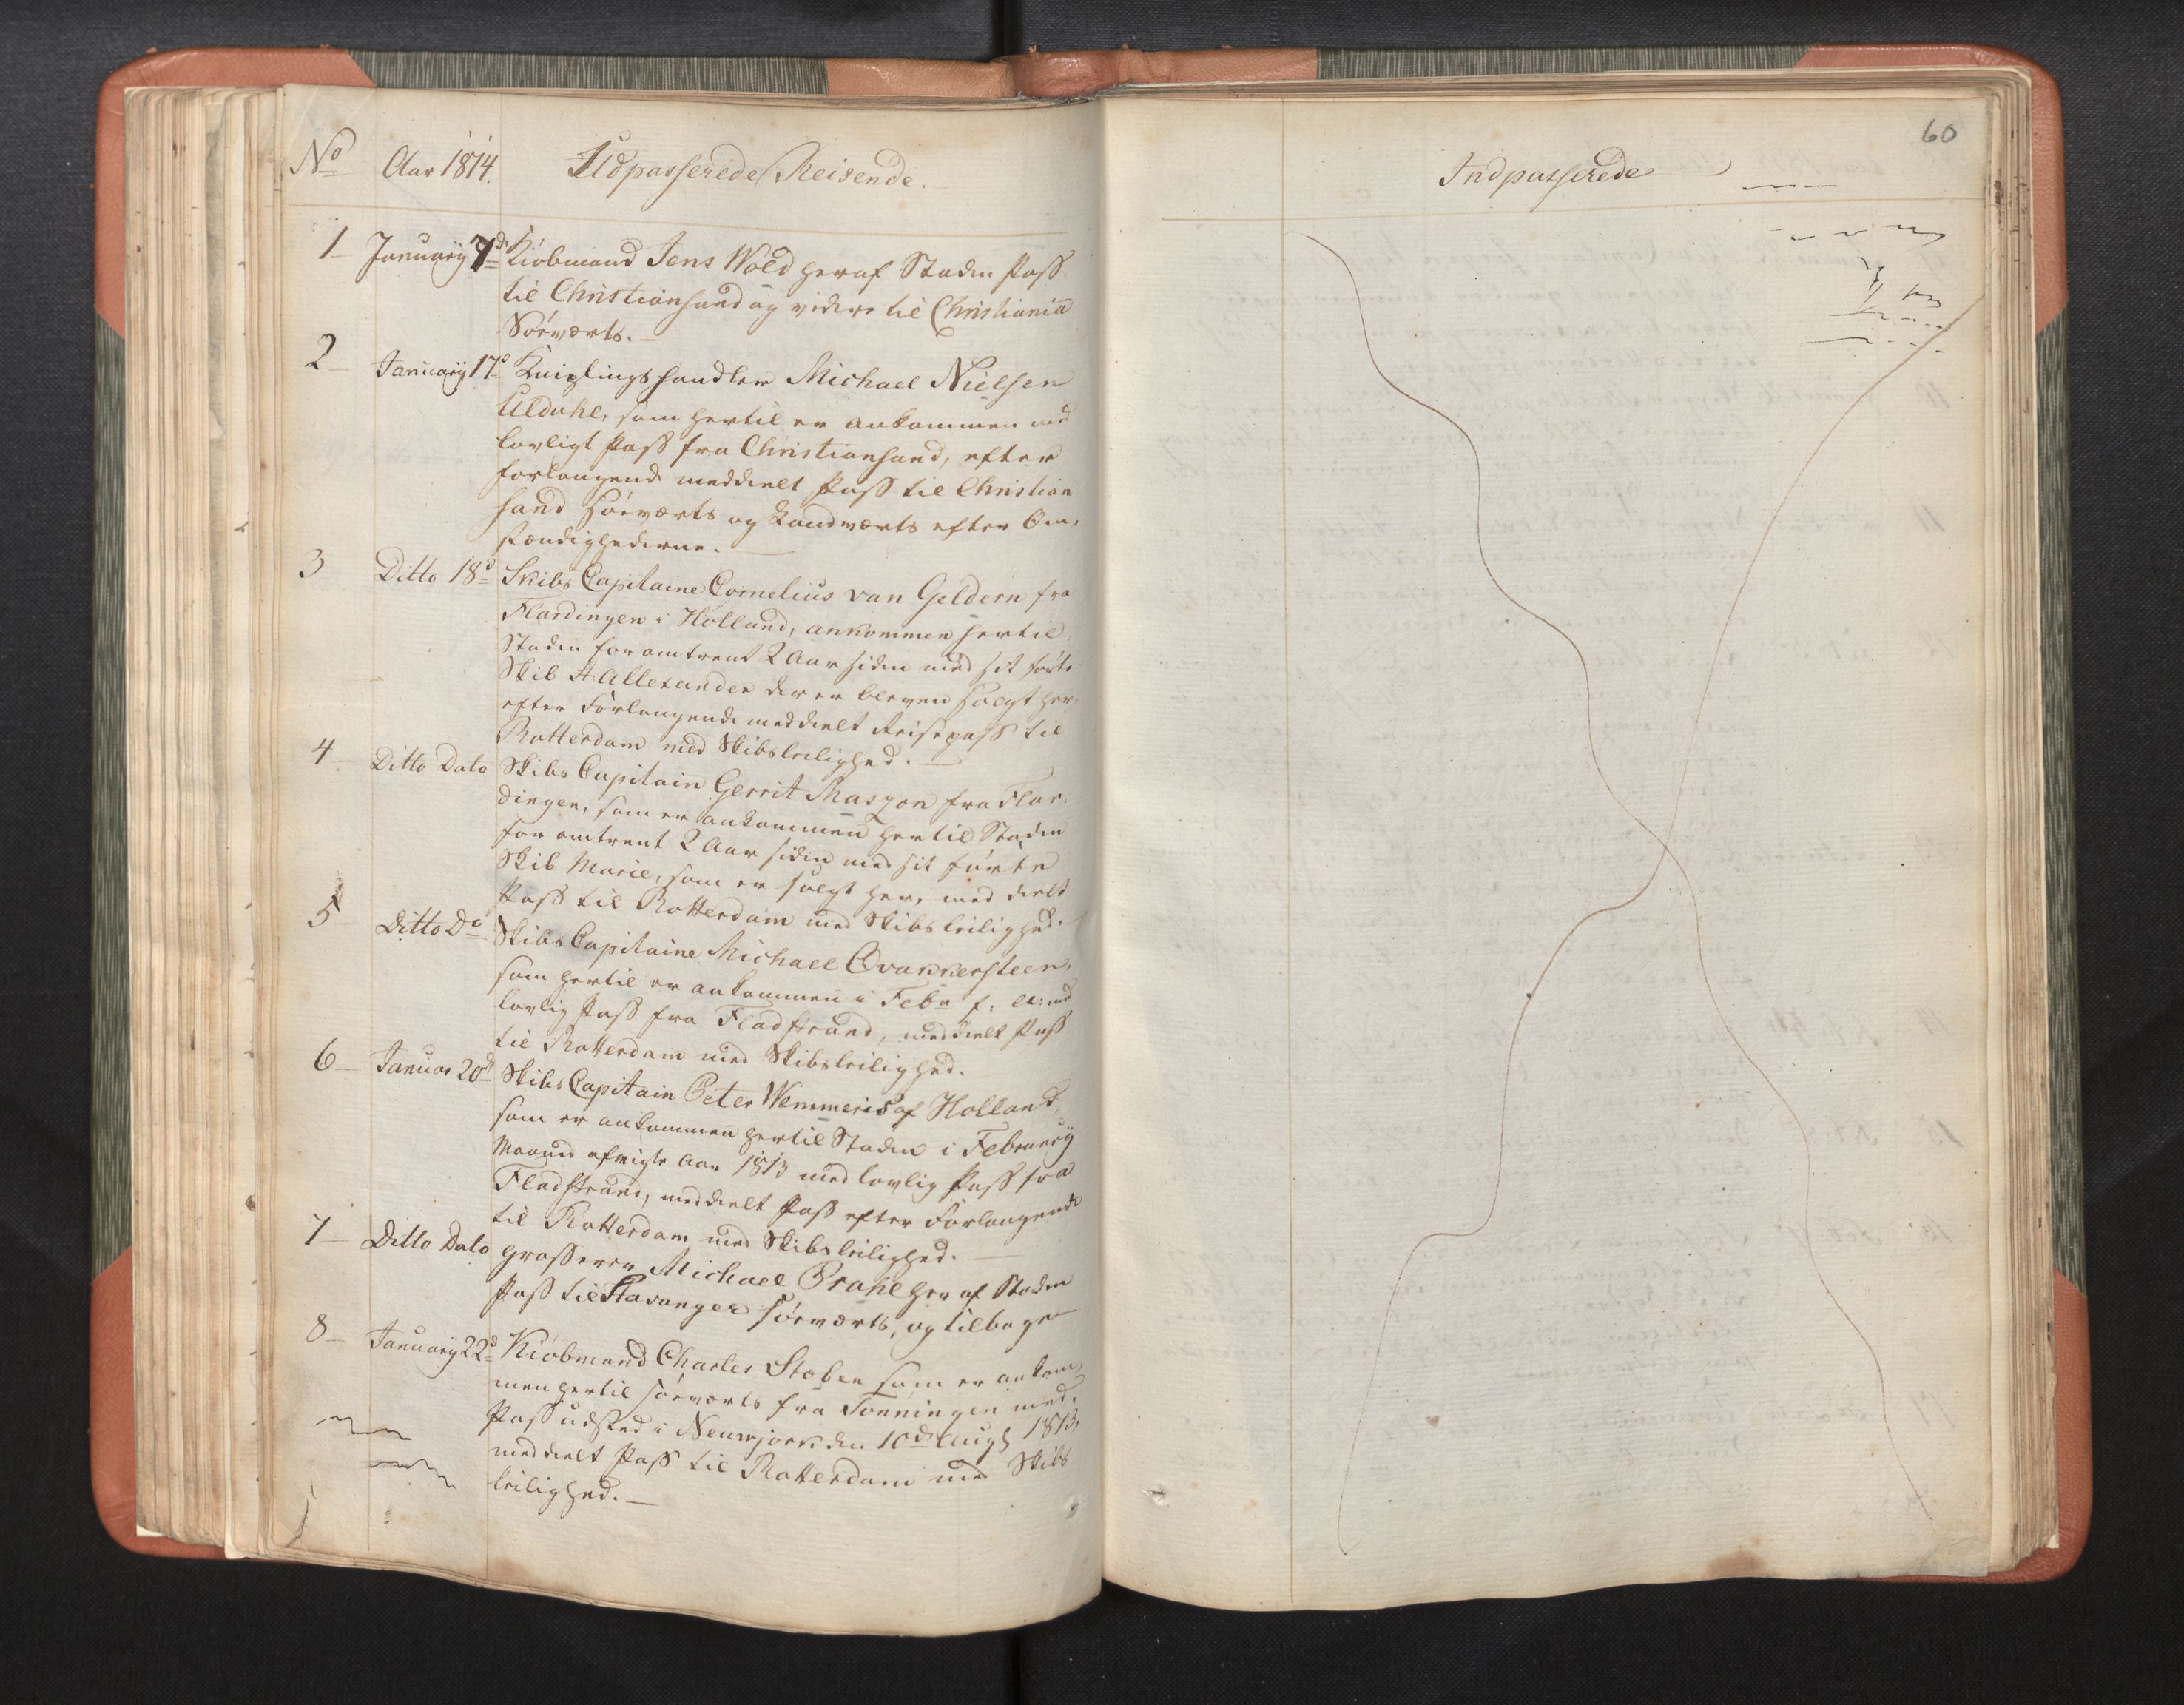 No Aar 1814. Udpasserede Reisende.
1 January 7de Kiöbmand Jens Wold heraf Staden Pass
til Christiansand og videre til Christiania
Söeværts.
2 January 17d Kniplingshandler Michael Nielsen
Uldahl, som hertil er ankommen med
lovligt Pass fra Christiansand, efter
forlangende meddeelt Pass til Christian
sand Söeværts og Landværts efter Om-
stændighederne.
3 Ditto 18d Skibs Capitaine Cornelius van Geldern fra
Flardingen i Holland, ankommen hertil
Staden for omtrent 2 Aar siden med sit förte
Skib Allexander der er bleven solgt her,
efter Forlangende meddeelt Reisepass til
Rotterdam med Skibsleilighed.
4 Ditto Dato Skibs Capitain Gerrit Maszon fra Flar-
dingen, som er ankommen hertil Staden
for omtrent 2 Aar siden med sit förte
Skib Marie, som er solgt her, meddeelt
Pass til Rotterdam med Skibsleilighed.
5 Ditto Do Skibs Capitaine Michael Qvakkersteen,
som hertil er ankommen i Febr f: A: med
lovlig Pass fra Fladstrand, meddeelt Pass
til Rotterdam med Skibsleilighed.
6 Januar 20d Skibs Capitain Peter Wemmeris af Holland,
som er ankommen hertil Staden i February
Maaned afvigte Aar 1813 med lovlig Pass fra
Fladstrand, meddeelt Pass efter Forlangende
til Rotterdam med Skibsleilighed.
7 Ditto Dato Grosserer Michael Prahl her af Staden
Pass til Stavanger söeværts, og tilbage
8 January 22d Kiöbmand Charles Stoben som er ankom-
men hertil söeværts fra Tönningen med
Pass udsted i Neuwjork den 10de Augt 1813,
meddeelt Pass til Rotterdam med Skibs
leilighed.
60
Indpasserede